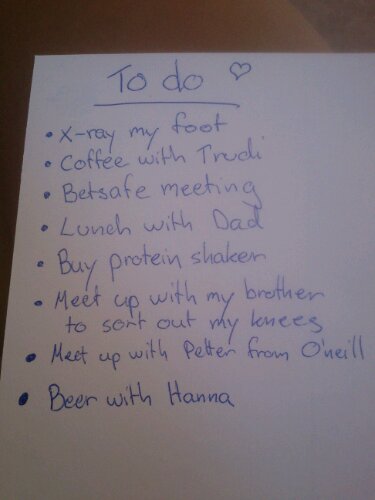 To do ♡
• X-ray my foot
• Coffee with Trudi
• Betsafe meeting
• Lunch with Dad
• Buy protein shaker
• Meet up with my brother
to sort out my knees
• Meet up with Petter from O'neill
• Beer with Hanna